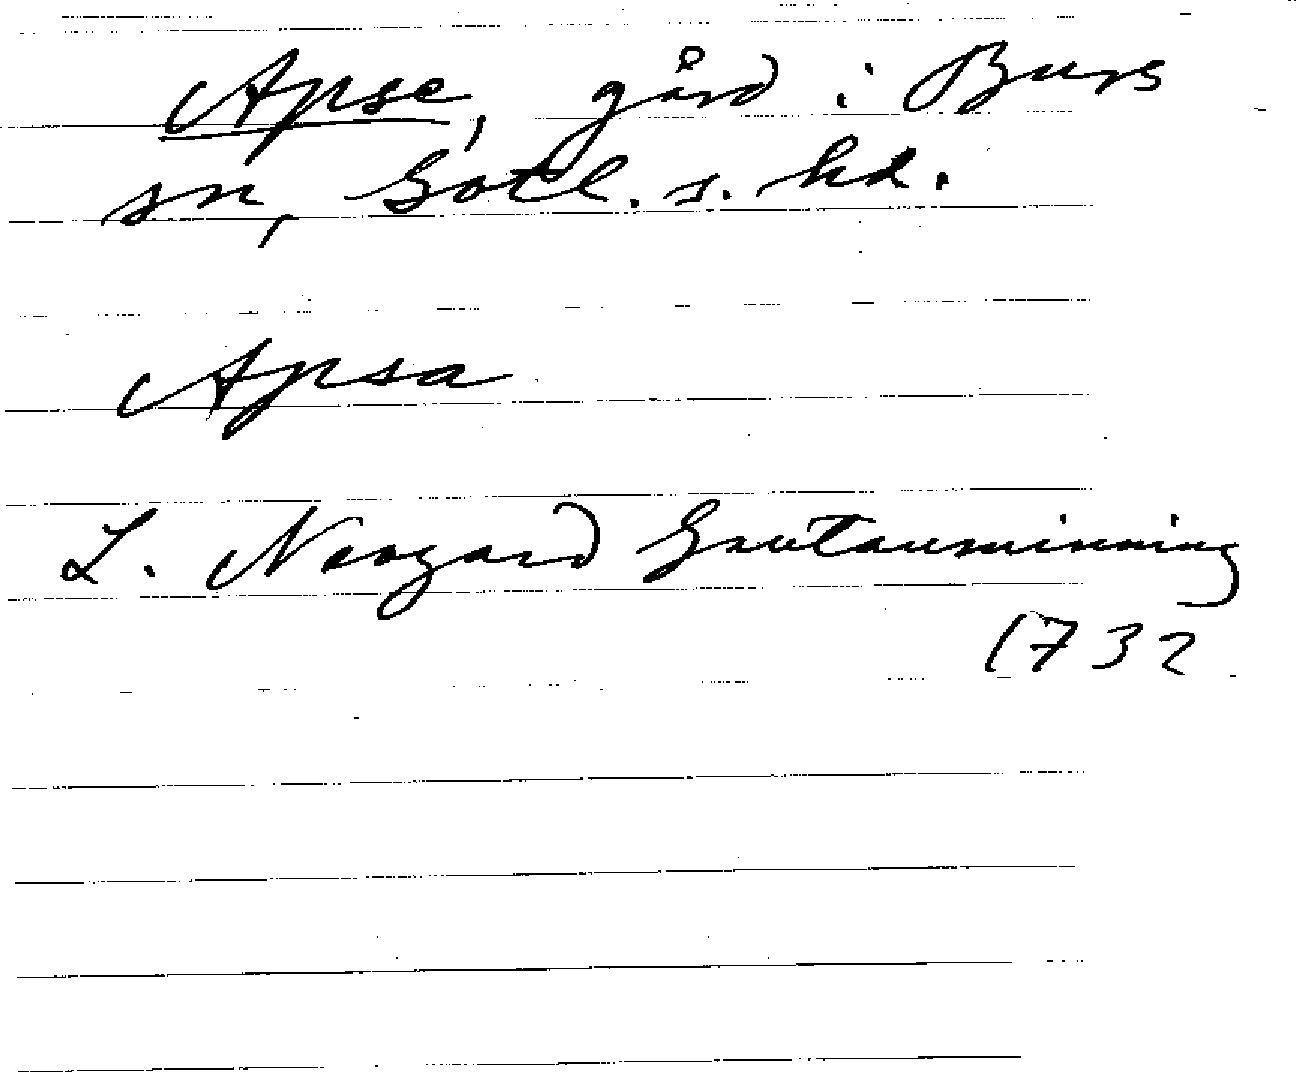 Apse, gård i Burs
sn, Gotl. s. hd.
Apsa
L. Neogard Gautauminning
1732